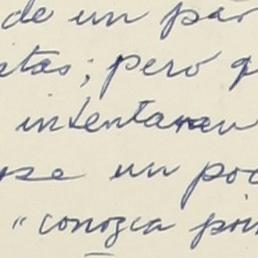 de un par
stas; pero q
intentaran
se un poc
"conozca poi